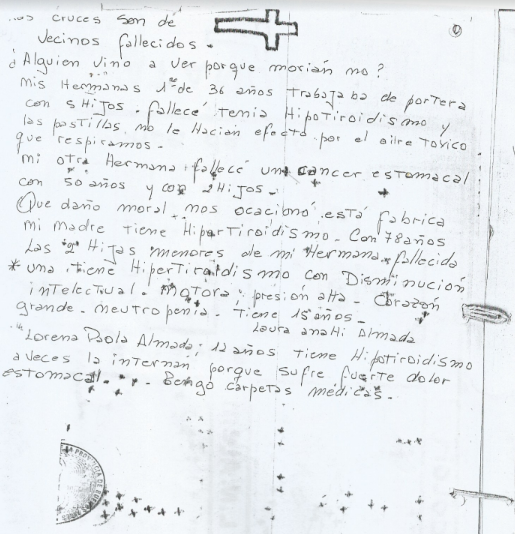 cruces son de
vecinos fallecidos.
¿Alguien vino a ver porque morian no?
mis Hermanas 1ª de 36 años trabajaba de portera
con 5 Hijos. fallecé tenia Hipotiroidismo y
las pastillas no le Hacian efecto por el aire toxico
que respiramos.
mi otra Hermana fallecé un cancer estomacal
con 50 años y con 2 Hijos.
Que daño moral mos ocacionó está fabrica
mi madre tiene Hipertiroidismo. Con 78 años
Las 2 Hijas menores de mi Hermana fallecida
* una tiene Hipertiroidismo con Disminución
intelectual. motóra presión alta. Corazón
grande. neutropenia. Tiene 15 años.
Laura anaHi Almada
Lorena Paola Almada: 12 años tiene Hipotiroidismo
aveces la internán porque sufre fuerte dolor
estomacal. Bengo cárpetas médicas.
LA PROVINCIA DE